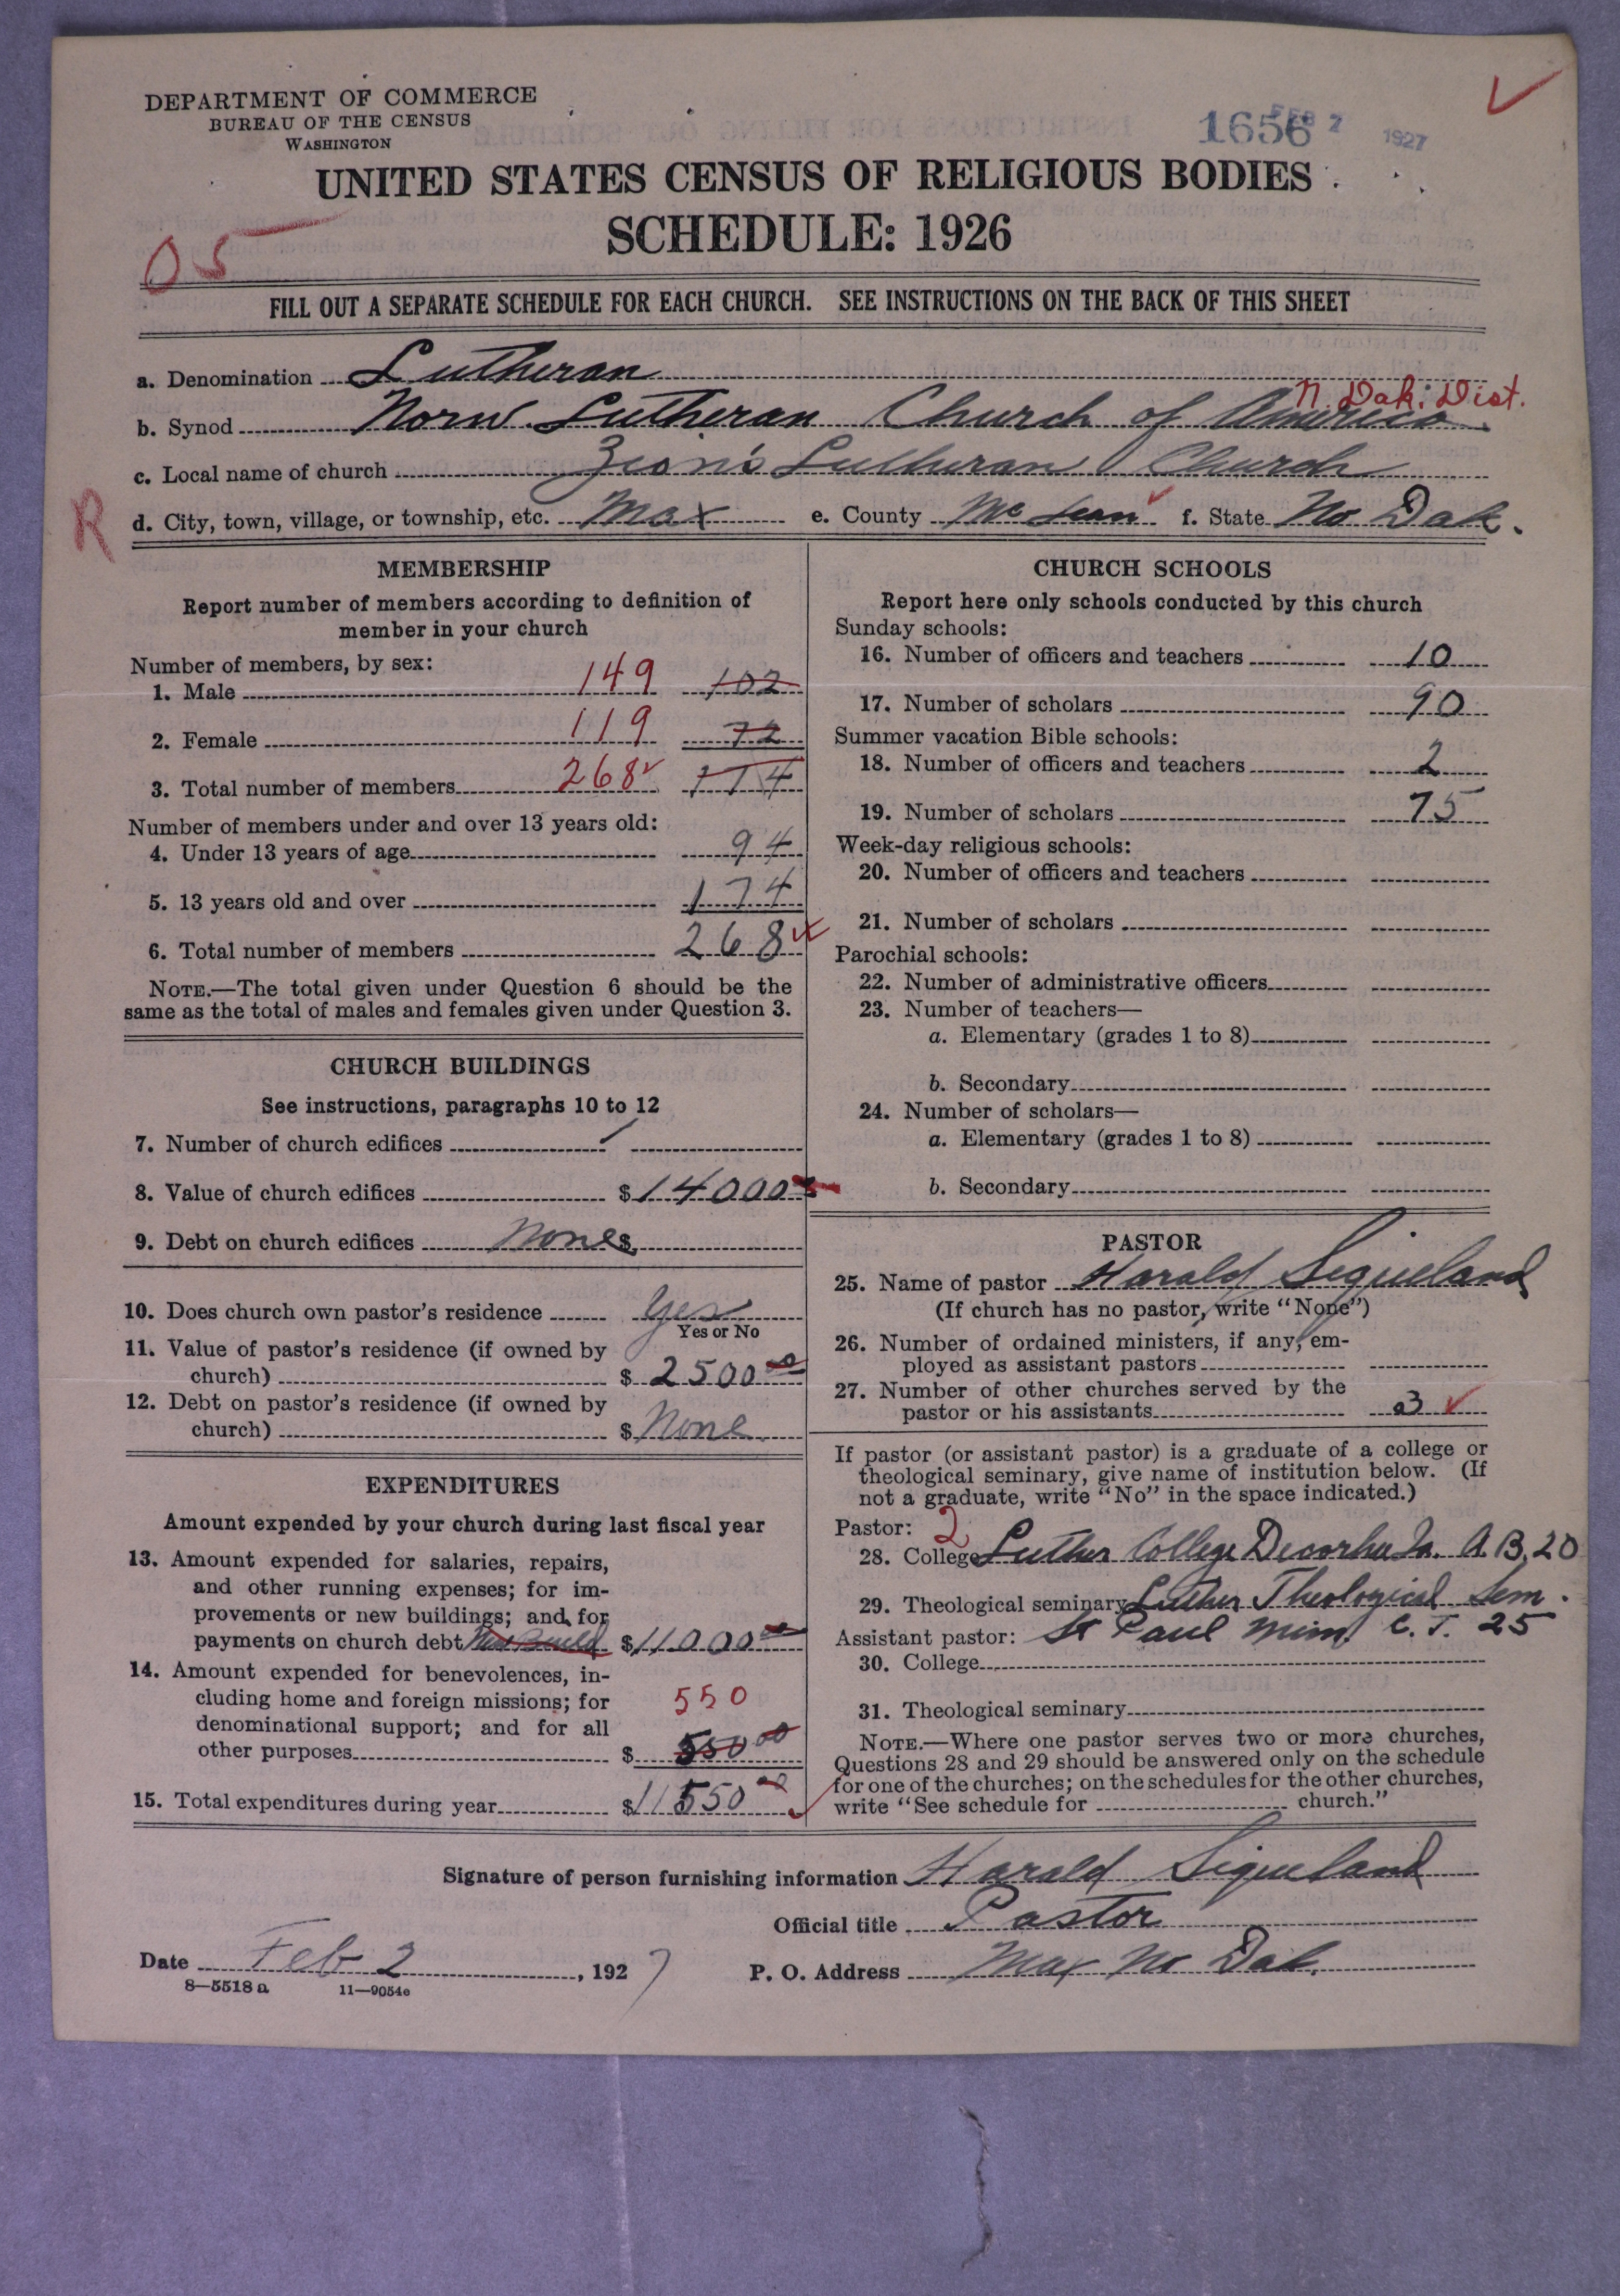 DEPARTMENT OF COMMERCE
BUREAU OF THE CENSUS
WASHINGTON
1656 FEB 2 1927
UNITED STATES CENSUS OF RELIGIOUS BODIES
SCHEDULE: 1926
05
FILL OUT A SEPARATE SCHEDULE FOR EACH CHURCH. SEE INSTRUCTIONS ON THE BACK OF THIS SHEET
a. Denomination Lutheran
N. Dak. Dist.
b. Synod Norw. Lutheran Church of America
c. Local name of church Zion's Lutheran Church
R
d. City, town, village, or township, etc. Max e. County Mc Lean f. State No Dak.
MEMBERSHIP
Report number of members according to definition of
member in your church
Number of members, by sex:
1. Male 149 102
2. Female 119 72
3. Total number of members 268 174
Number of members under and over 13 years old:
4. Under 13 years of age 94
5. 13 years old and over 174
6. Total number of members 268
NOTE.—The total given under Question 6 should be the
same as the total of males and females given under Question 3.
CHURCH BUILDINGS
See instructions, paragraphs 10 to 12
7. Number of church edifices
8. Value of church edifices $14000
9. Debt on church edifices None $
10. Does church own pastor's residence Yes
Yes or No
11. Value of pastor's residence (if owned by
church) $2500 00
12. Debt on pastor's residence (if owned by
church) $None
EXPENDITURES
Amount expended by your church during last fiscal year
13. Amount expended for salaries, repairs,
and other running expenses; for im-
provements or new buildings; and for
payments on church debt New Build $11000 00
14. Amount expended for benevolences, in-
cluding home and foreign missions; for 550
denominational support; and for all
other purposes $550 00
15. Total expenditures during year $11550 00
CHURCH SCHOOLS
Report here only schools conducted by this church
Sunday schools:
16. Number of officers and teachers 10
17. Number of scholars 90
Summer vacation Bible schools:
18. Number of officers and teachers 2
19. Number of scholars 75
Week-day religious schools:
20. Number of officers and teachers
21. Number of scholars
Parochial schools:
22. Number of administrative officers
23. Number of teachers—
a. Elementary (grades 1 to 8)
b. Secondary
24. Number of scholars—
a. Elementary (grades 1 to 8)
b. Secondary
PASTOR
25. Name of pastor Harald Sigueland
(If church has no pastor, write "None")
26. Number of ordained ministers, if any, em-
ployed as assistant pastors
27. Number of other churches served by the
pastor or his assistants 3
If pastor (or assistant pastor) is a graduate of a college or
theological seminary, give name of institution below. (If
not a graduate, write "No" in the space indicated.)
Pastor: 2
28. College Luther College Decorha Ia. A.B. 20
29. Theological seminary Luther Theological Sem.
Assistant pastor: St Paul Minn. C.T. 25
30. College
31. Theological seminary
NOTE.—Where one pastor serves two or more churches,
Questions 28 and 29 should be answered only on the schedule
for one of the churches; on the schedules for the other churches,
write "See schedule for church."
Signature of person furnishing information Harald Sigueland
Official title Pastor
Date Feb 2, 1927 P. O. Address Max No Dak.
8—5518 a 11—9054e